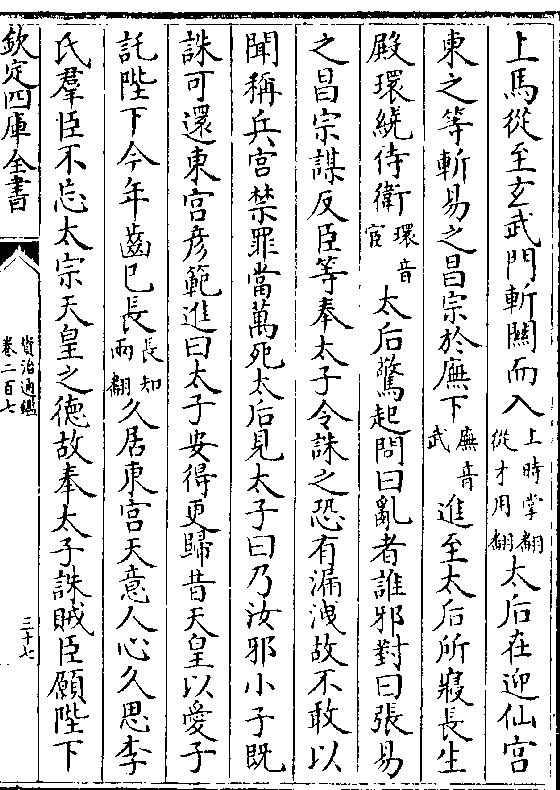 上馬從至玄武門斬關而入上時掌翻從才用翻太后在迎仙宮
東之等斬易之昌宗於廡下廡音武進至太后所寢長生
殿環繞侍衛環音宦太后驚起問曰亂者誰邪對曰張易
之昌宗謀反臣等奉太子令誅之恐有漏洩故不敢以
聞稱兵宮禁罪當萬死太后見太子曰乃汝邪小子既
誅可還東宮彥範進曰太子安得更歸昔天皇以愛子
託陛下今年齒已長長知兩翻久居東宮天意人心久思李
氏羣臣不忘太宗天皇之德故奉太子誅賊臣願陛下
欽定四庫全書
資治通鑑
卷二百七
三十七